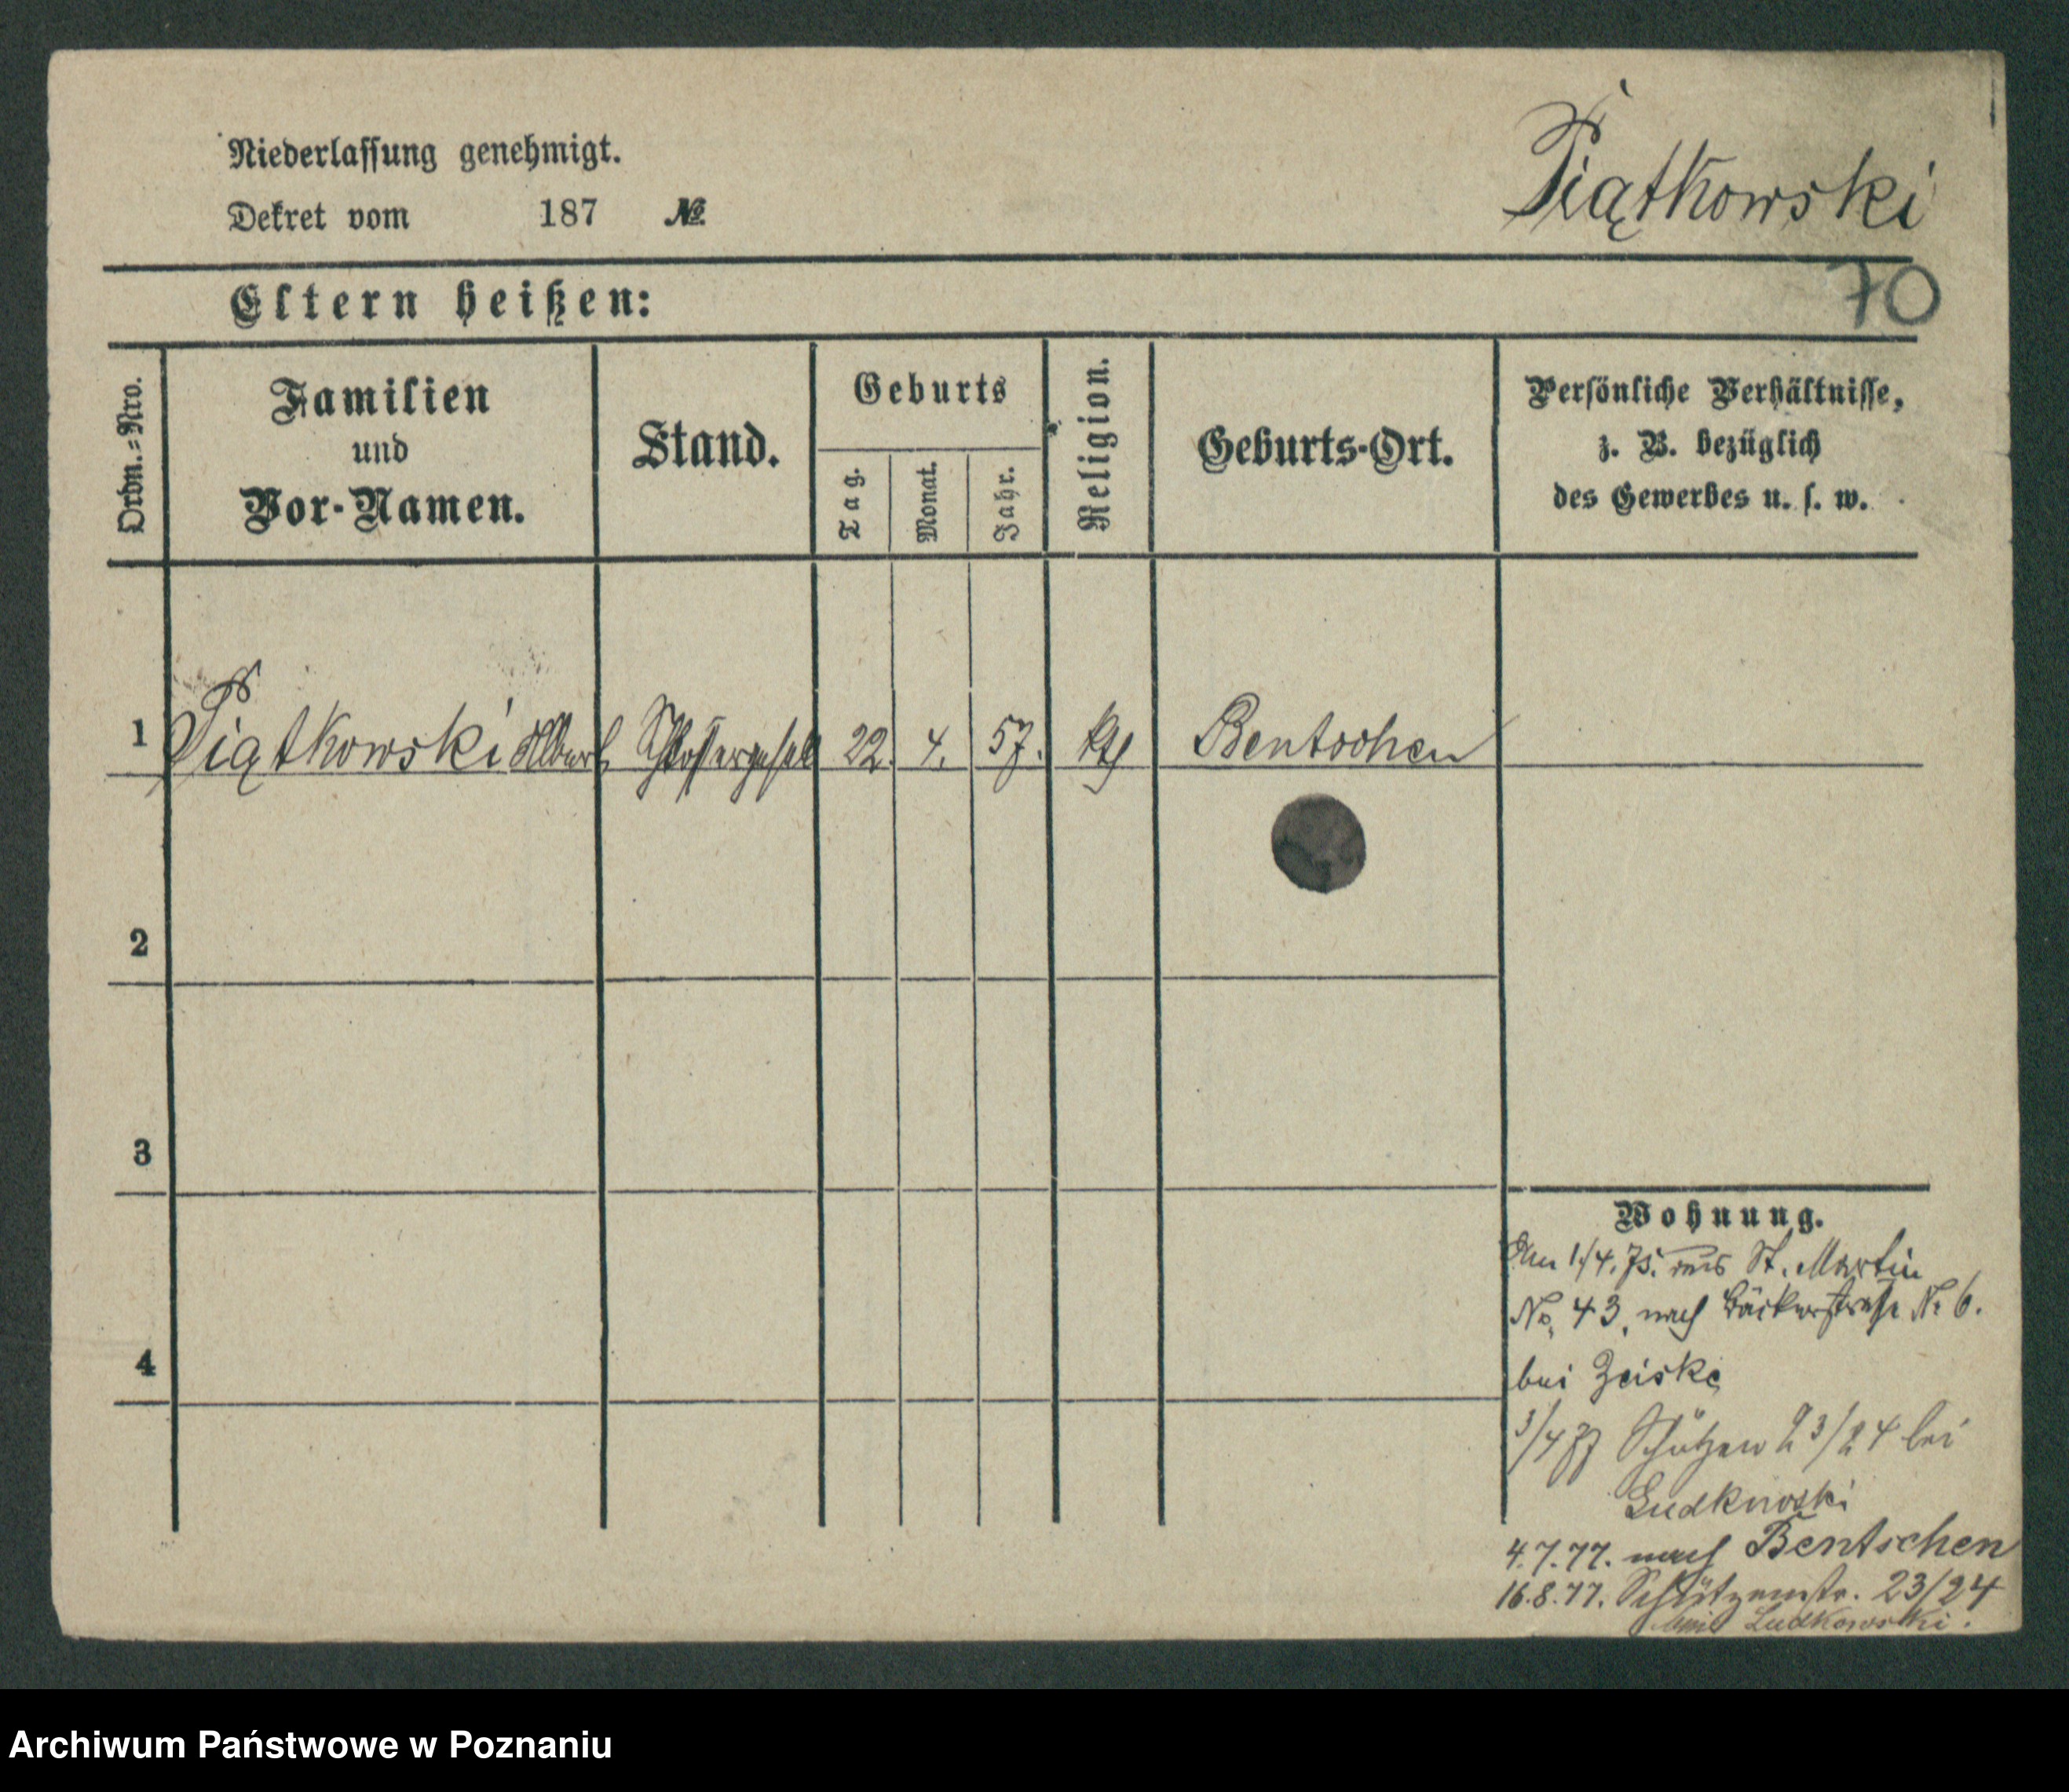 Niederlassung genehmigt.
Dekret vom 187 №
Piątkowski
70
Eltern heißen:
Ordn.=Nro.
Familien
und
Vor-Namen.
Stand.
Geburts
Tag.
Monat.
Jahr.
Religion.
Geburts-Ort.
Persönliche Verhältnisse,
z. B. bezüglich
des Gewerbes u. s. w.
1 Piątkowski Albert Schlossergesell 22. 4. 57. kth Bentschen
2
3
4
Wohnung.
Am 1/4. 75. aus St. Martin
No. 43, nach Bäckerstraße No 6.
bei Zeiske
3/4 77 Schützen 23/24 bei
Ludkowski
4.7.77. nach Bentschen
16.8.77. Schützenstr. 23/24
Ludkowski.
Archiwum Państwowe w Poznaniu